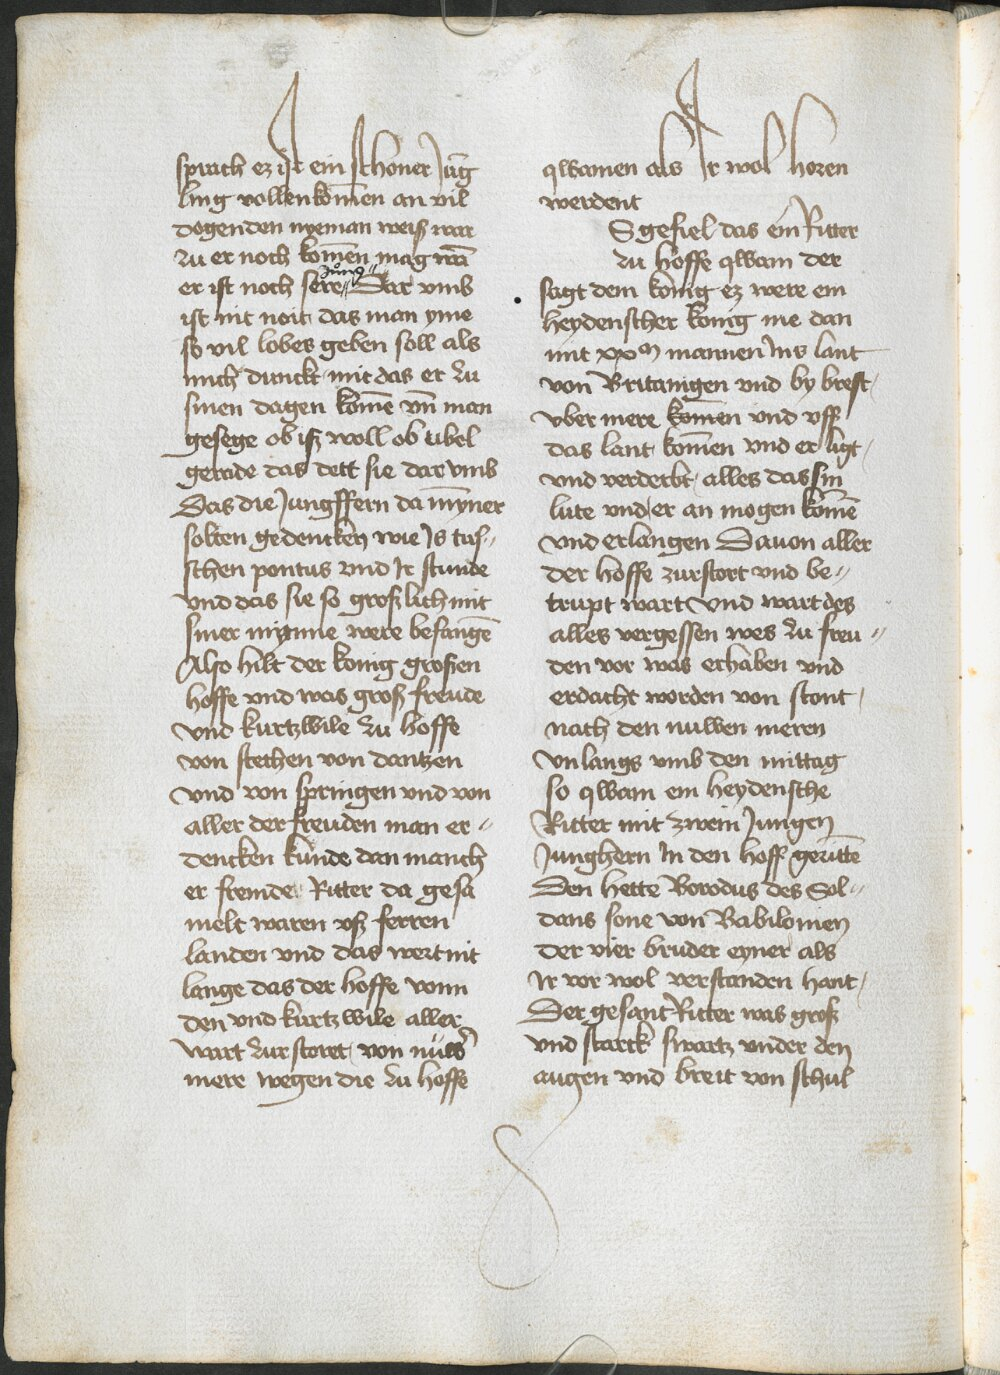 sprach ez ist ein schoner Jũg
ling vollenkom̃en an vil
dogenden nyeman weiß war
zu er noch kom̃en mag wã
er ist noch sere Dar vmb
jung
ist nit noit das man yme
so vil lobes geben soll als
mich dunckt mit das er zu
sinen dagen kom̃e vñ man
gesege ob iß woll ob ubel
gerade das dett sie dar vmb
Das die Jungffern da myner
solten gedencken wie Is tus„
schen pontus vnd Ir stunde
vnd das sie so großlich mit
siner mynne were befangẽ
Also hilt der konig großen
hoffe vnd was groß freude
vnd kurtzwile zu hoffe
von stechen von dantzen
vnd von springen vnd von
aller der freuden man er„
dencken kunde dan manch
er fremde Ritter da gesa
melt waren vß ferren
landen vnd das wert nit
lange das der hoffe vonn
den vnd kurtzwile aller
wart zurstoret von nuwer
mere wegen die zu hoffe
qwamen als Ir wol horen
werdent
S gefiel das ein Ritter
zu hoffe qwam der
sagt dem konig ez were ein
heydenscher konig nie dan
mit xxm mannen Ins lant
von Britanigen vnd by brest
vber mere kom̃en vnd vff
das lant kom̃en vnd er ligt
vnd verderbt alles das sin
lute vnd er an mogen kom̃e
vnd erlangen Dauon aller
der hoffe zurstort vnd be„
trupt wart Vnd wart des
alles vergessen wes zu freu„
den vor was erhaben vnd
erdacht worden von stont
nach den nuwen meren
Vnlangs vmb den mittag
so qwam ein heydensche
Ritter mit zwein Jungen
Junghern In den hoff geritte
Den hette Borodus des Sol„
dans sone von Babilonien
Der vier bruder eyner als
Ir vor wol verstanden hant
Der gesant Ritter was groß
vnd starck swartz vnder den
augen vnd breit von schul